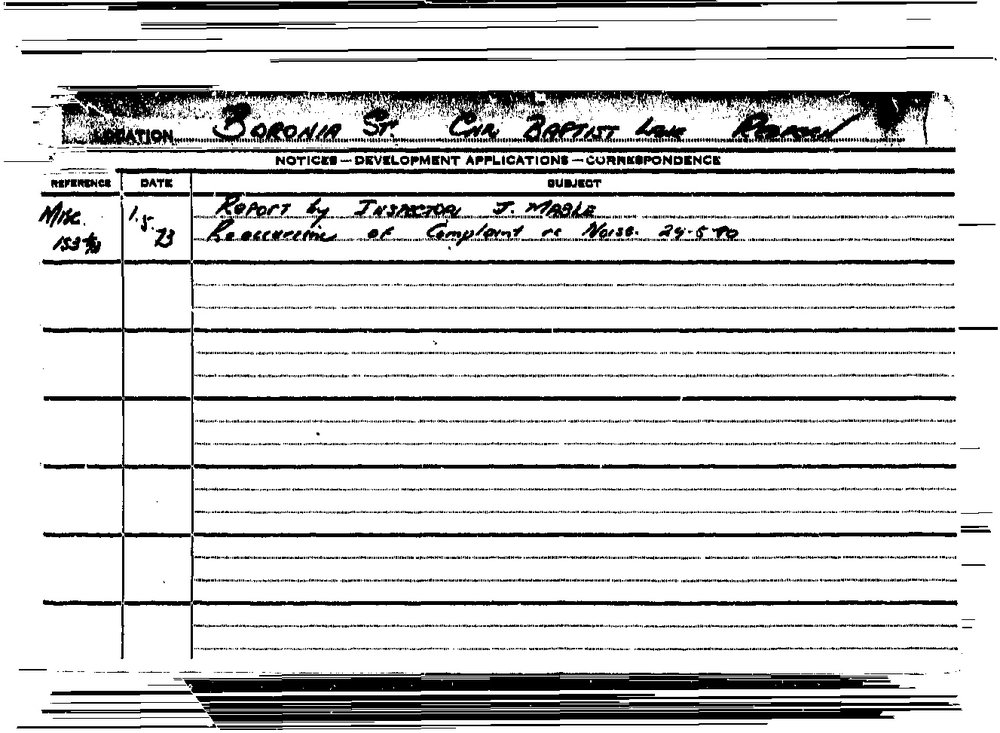 LOCATION BORONIA ST. CNR. BAPTIST LANE REDFERN
NOTICES—DEVELOPMENT APPLICATIONS—CORRESPONDENCE
REFERENCE DATE SUBJECT
Misc. 1.5.73 REPORT by INSPECTOR J. MABLE
of Complaint re Noise. 29-5-70